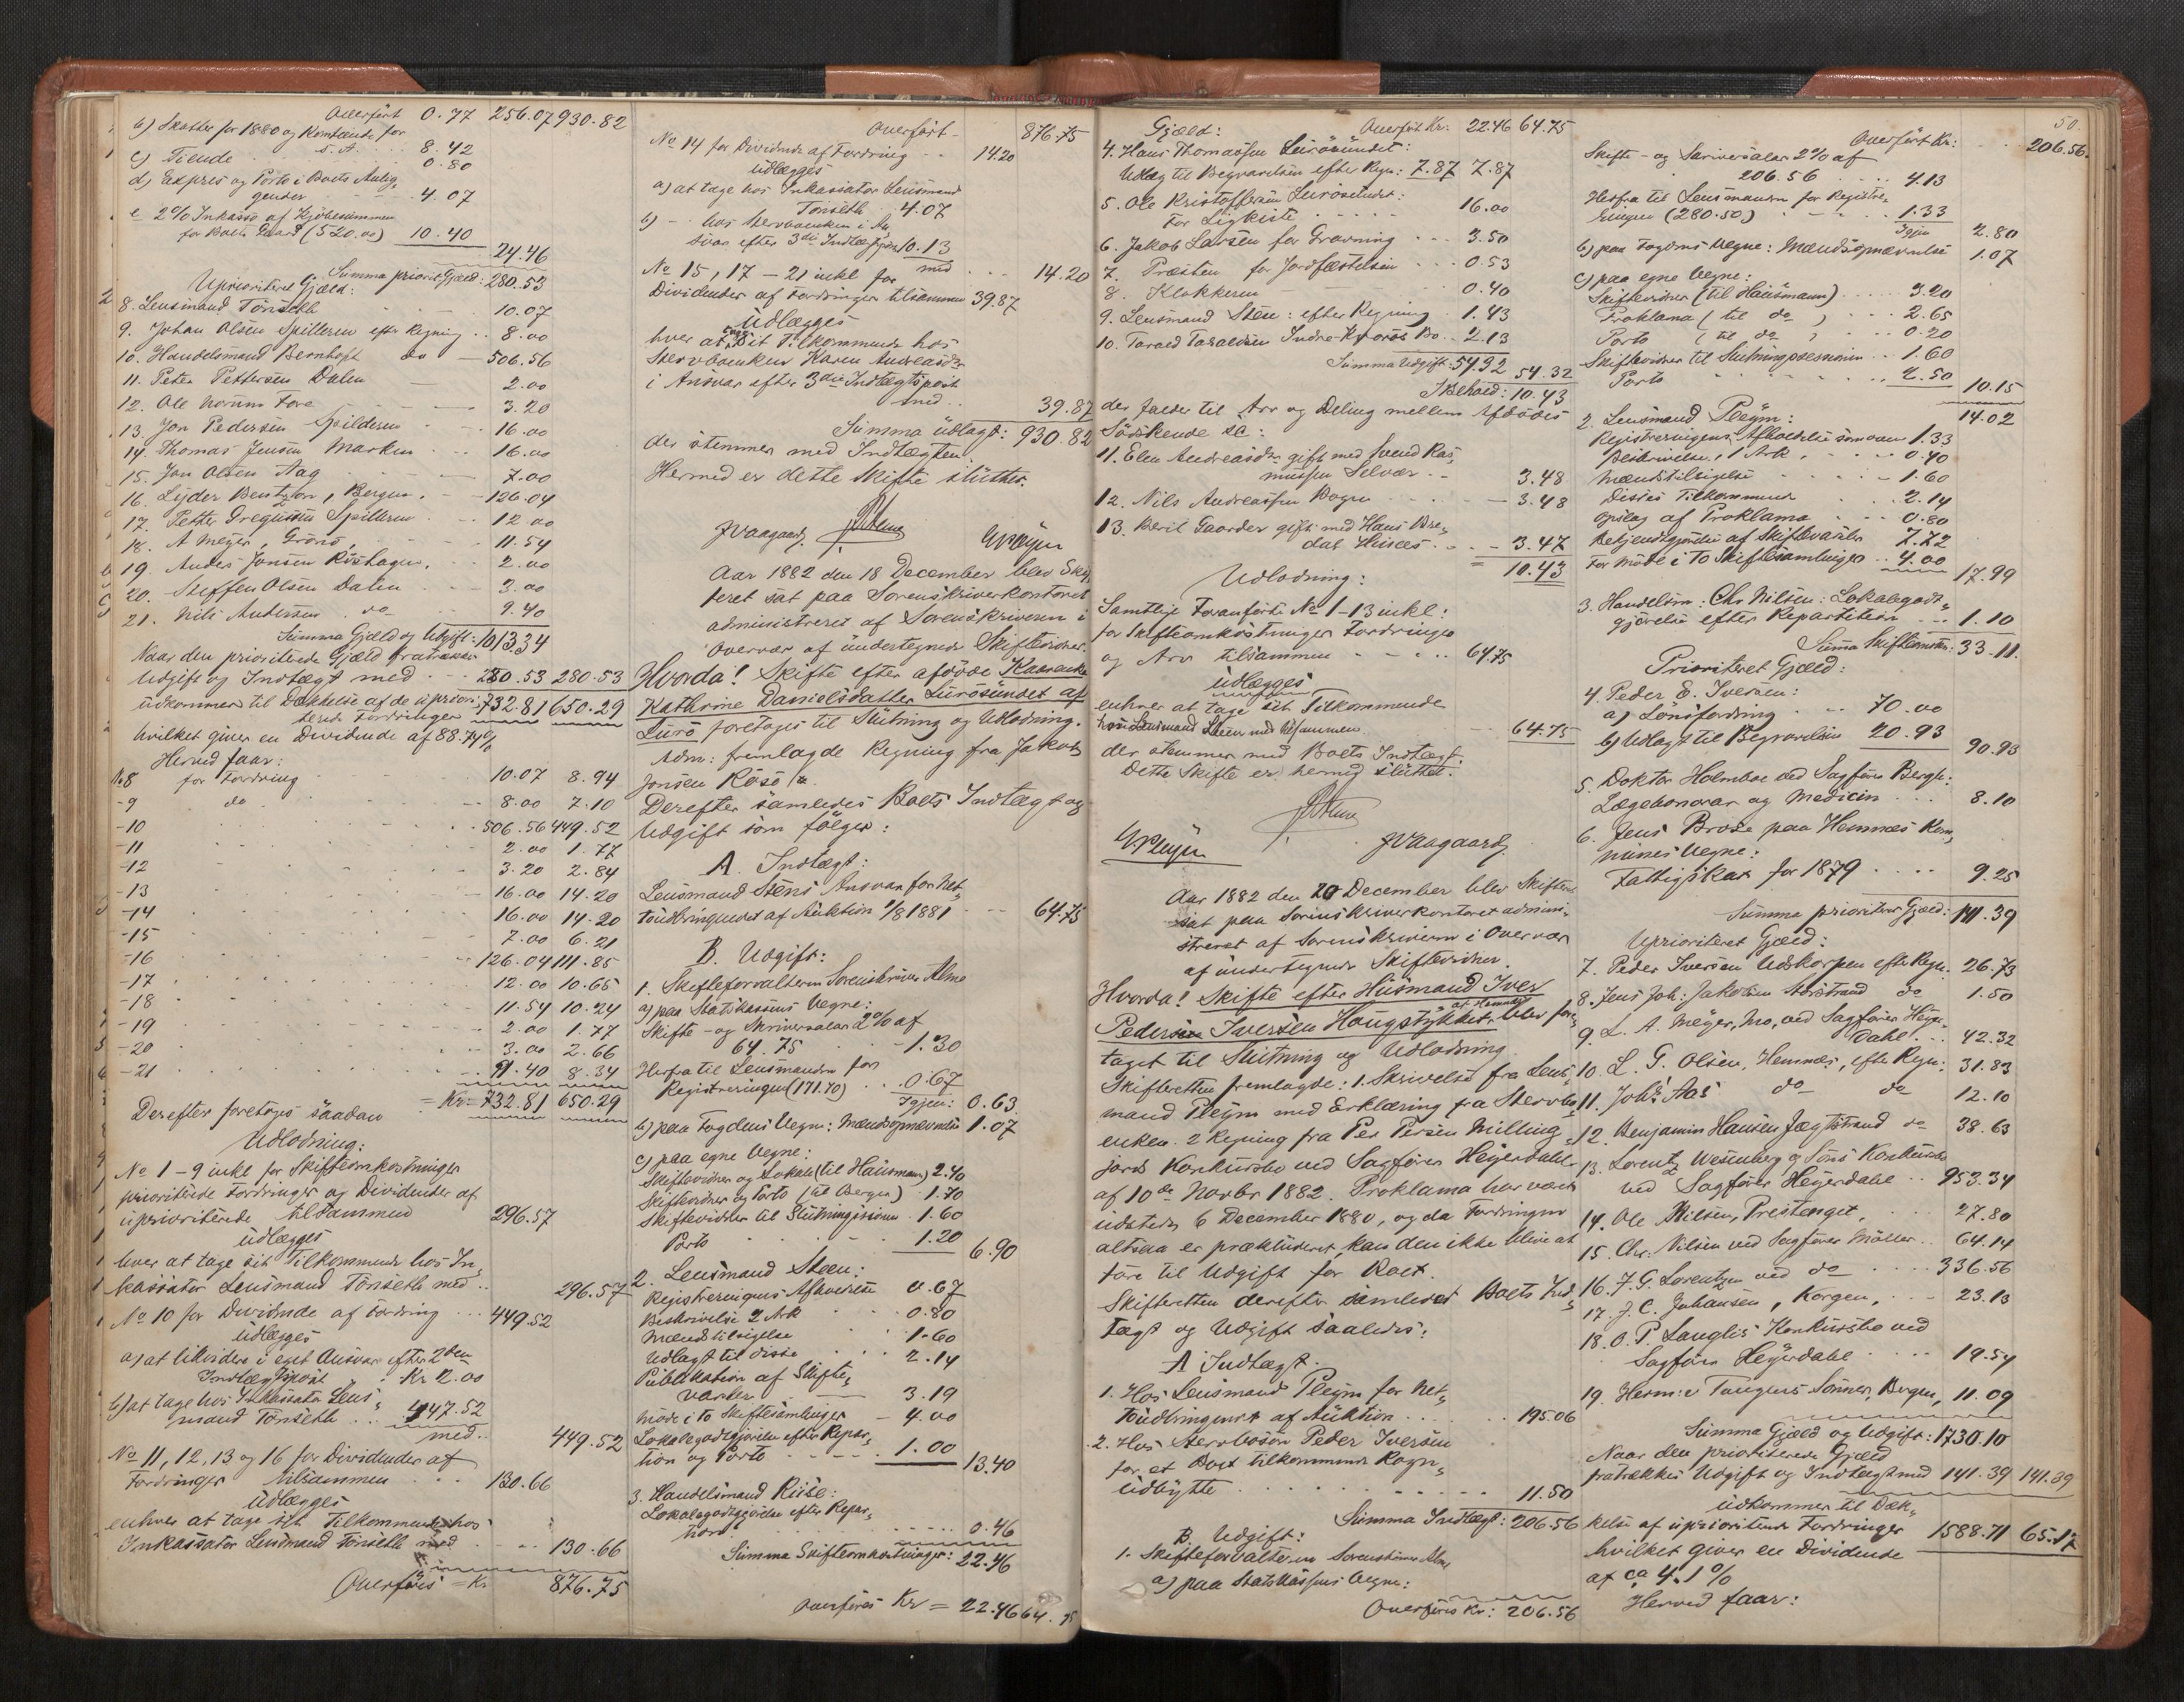 Overført 0.77 256.07 930.82
b) Skatter for 1880 og Korntiende for
s. A. 8.42
c) Tiende 0.80
d) Expres og Porto i Boets Anlig„
gender 4.07
e 2% Inkasso af Kjøbesummen
for Boets Gaard (520.00) 10.40
24.46
Summa priorit Gjæld: 280.53
Uprioriteret Gjæld:
8. Lensmand Tönseth 10.07
9. Johan Olsen Spilleren efter Regning 8.00
10. Handelsmand Bernhoft do 506.56
11. Peter Pettersen Dalen 2.00
12. Ole Norum Fore 3.20
13. Jon Pedersen Spilderen 16.00
14. Thomas Jensen Marken 16.00
15. Jon Olsen Aag 7.00
16. Lyder Bentzon, Bergen, 126.04
17. Petter Gregusen Spilleren 12.00
18. A Meyer, Grönö, 11.54
19. Anders Jonsen Röshagen, 2.00
20. Steffen Olsen Dalen 3.00
21. Nils Andersen do 9.40
Summa Gjæld og Udgift: 1013.34
Naar den prioriterede Gjæld fratrækkes
Udgift og Indtægt med 280.53 280.53
udkommer til Dækkelse af de upriori„
terede Fordringer 732.81 650.29
hvilket giver en Dividende af 88.74%
Herved faar:
No 8 for Fordring 10.07 8.94
-9 do 8.00 7.10
-10 506.56 449.52
-11 2.00 1.77
-12 3.20 2.84
-13 16.00 14.20
-14 16.00 14.20
-15 7.00 6.21
-16 126.04 111.85
-17 12.00 10.65
-18 11.54 10.24
-19 2.00 1.77
-20 3.00 2.66
-21 9.40 8.34
= Kr = 732.81 650.29
Derefter foretoges saadan
Udlodning:
No 1-9 inkl for Skifteomkostninger
prioriterede Fordringer og Dividender af
uprioriterede tilsammen 296.57
udlægges
hver at tage sit Tilkommende hos In„
kassator Lensmand Tönseth med 296.57
No 10 for Dividende af Fordring 449.52
udlægges
a) at likvidere i eget Ansvar efter 2den
Indtægtspost Kr 2.00
b) at tage hos Inkassator Lens„
mand Tönseth 447.52
med 449.52
No 11, 12, 13 og 16 for Dividender af
Fordringer tilsammen 130.66
udlægges
enhver at tage sit Tilkommende hos
Inkassator Lensmand Tönseth med 130.66
Overføres = Kr 876.75
Overført 876.75
No 14 for Dividende af Fordring 14.20
udlægges
a) at tage hos Inkassator Lensmand
Tönseth 4.07
b) - hos Stervboenken i An„
svar efter 3die Indtægtspost 10.13
med 14.20
No 15, 17-21 inkl for
Dividender af Fordringer tilsammen 39.87
udlægges
hver at tage sit Tilkommende hos
Stervboenken Karen Andreasdr
i Ansvar efter 3die Indtægtspost
med 39.87
Summa udlagt: 930.82
der stemmer med Indtægten.
Hermed er dette Skifte sluttet.
JVaagaard
Aar 1882 den 18 December blev Skif„
teret sat paa Sorenskriverkontoret
administreret af Sorenskriveren i
Overvær af undertegnede Skiftevidner.
Hvorda! Skifte efter afdøde Kaarenke
Kathrine Danielsdatter Lurösundet af
Lurö foretoges til Slutning og Udlodning.
Adm: fremlagde Regning fra Jakob
Jonsen Rösö
Derefter samledes Boets Indtægt og
Udgift som følger:
A. Indtægt:
Lensmand Stens Ansvar for Net„
toudbringendet af Auktion 1/8 1881 64.75
B. Udgift:
1. Skifteforvalteren Sorenskriver Alme
a) paa Statskassens Vegne:
Skifte- og Skriversalær 2% af
64.75 1.30
Herfra til Lensmanden for
Registreringen (171.70) 0.67
Igjen: 0.63
b) paa Fogdens Vegne: Mændsopnævnelse 1.07
c) paa egne Vegne:
Skiftevidner og Lokale (til Hausmann) 2.40
Skiftevidner og Porto (til Bergen) 1.70
Skiftevidner til Slutningssession 1.60
Porto 1.20
6.90
2. Lensmand Steen:
Registreringens Afholdelse 0.67
Beskrivelse 2 Ark 0.80
Mændstilsigelse 1.60
Udlagt til disse 2.14
Publikation af Skifte„
varsler 3.19
Møde i to Skiftesamlinger 4.00
Lokalegodtgjørelse efter Repar„
tion og Porto 1.00
13.40
3. Handelsmand Riise:
Lokalegodtgjørelse efter Repar„
tion 0.46
Summa Skifteomkostninger: 22.46
Overføres Kr = 22.46 64.75
Overført Kr: 22.46 64.75
Gjæld:
4. Hans Thomassen Lurösundet:
Udlæg til Begravelsen efter Regn: 7.87 7.87
5. Ole Kristoffersen Lurösundet:
For Ligkiste 16.00
6. Jakob Larsen for Gravning 3.50
7. Præsten for Jordfæstelsen 0.53
8. Klokkeren 0.40
9. Lensmand Sten: efter Regning 1.43
10. Tarald Taraldsen Indre-Kvarös Bo 2.13
Summa Udgift: 54.32 54.32
I Behold: 10.43
der falder til Arv og Deling mellem Afdødes
Södskende sc:
11. Elen Andreasdr gift med Svend Ras„
mussen Selvær 3.48
12. Nils Andreassen Bogen 3.48
13. Berit Gaarder gift med Hans Bre„
dal Husees 3.47
10.43
Udlodning:
Samtlige Foranførte No 1-13 inkl:
for Skifteomkostninger Fordringer
og Arv tilsammen 64.75
udlægges
enhver at tage sit Tilkommende
hos Lensmand Steen med tilsammen 64.75
der stemmer med Boets Indtægt.
Dette Skifte er hermed sluttet.
JVaagaard
Aar 1882 den 20 December blev Skifteret
sat paa Sorenskriverkontoret admini„
streret af Sorenskriveren i Overvær
af undertegnede Skiftevidner.
Hvorda! Skifte efter Husmand Iver
Pedersen Iversen Haugstykket af Hemnes blev fore„
taget til Slutning og Udlodning
Skifteretten fremlagde: 1. Skrivelse fra Lens„
mand Pleym med Erklæring fra Stervbo„
enken. 2 Regning fra Per Persen Milling„
jords Konkursbo ved Sagfører Heyerdahl
af 10de Novbr 1882. Proklama har været
udstedt 6 December 1880, og da Fordringen
altsaa er prækluderet, kan den ikke blive at
føre til Udgift for Boet.
Skifteretten derefter samledet Boets Ind„
tægt og Udgift saaledes:
A Indtægt.
1. Hos Lensmand Pleym for Net„
toudbringendet af Auktion 195.06
2. Hos Stervbosøn Peder Iversen
for et Boet tilkommende Rogn„
udbytte 11.50
Summa Indtægt: 206.56
B. Udgift:
1. Skifteforvalteren Sorenskriver Alme
a) paa Statskassens Vegne:
Overføres Kr: 206.56
50.
Overført Kr: 206.56.
Skifte- og Skriversalær 2% af
206.56 4.13
Herfra til Lensmanden for Registre„
ringen (280.50) 1.33
Igjen 2.80
b) paa Fogdens Vegne: Mændsopnævnelse 1.07
c) paa egne Vegne:
Skiftevidner (til Hausmann) 3.20
Proklama (til do) 2.65
Porto (til do) 0.20
Skiftevidner til Slutningssession 1.60
Porto 2.50
10.15
14.02
2. Lensmand Pleym:
Registreringens Afholdelse som oven 1.33
Beskrivelse, 1 Ark, 0.40
Mændstilsigelse 1.60
Disses Tilkommende 2.14
Opslag af Proklama 0.80
Bekjendtgjørelse af Skiftevarsler 7.72
For Møde i to Skiftesamlinger 4.00
17.99
3. Handelsm: Chr Nilsen: Lokalegodt„
gjørelse efter Repartition 1.10
Summa Skifteomkn: 33.11.
Prioriteret Gjæld:
4. Peder E. Iversen:
a) Lønsfordring 70.00
b) Udlagt til Begravelsen 20.93
90.93
5. Doktor Holmboe ved Sagfører Bergh:
Lægehonorar og Medicin 8.10
6. Jens Brose paa Hemnæs Kom„
munes Vegne:
Fattigskat for 1879 9.25
Summa prioriteret Gjæld: 141.39
Uprioriteret Gjæld:
7. Peder Iversen Udskarpen efter Regn. 26.73
8. Jens Joh: Jakobsen Norstrand do 1.50
9. L. A. Meyer, Mo, ved Sagfører Heyer„
dahl 42.32
10. L. G. Olsen, Hemnæs, efter Regn: 31.83
11. Johs Aas do do 12.10
12. Benjamin Hansen Jægtstrand do 38.63
13. Lorentz Wesenberg & Søns Konkursbo
ved Sagfører Heyerdahl 953.34
14. Ole Nilsen, Prestænget, 27.80
15. Chr. Nilsen ved Sagfører Möller 64.14
16. F. G. Lorentzen ved do 336.56
17. J. C. Johansen, Korgen, 23.13
18. O. P. Langlis Konkursbo ved
Sagfører Heyerdahl 19.54
19. Herm: v Tangens Sönner, Bergen, 11.09
Summa Gjæld og Udgift: 1730.10
Naar den prioriterede Gjæld
fratrækkes Udgift og Indtægt med 141.39 141.39
udkommer til Dæk„
kelse af uprioriterede Fordringer 1588.71 65.17
hvilket giver en Dividende
af ca 4.1 %
Herved faar: